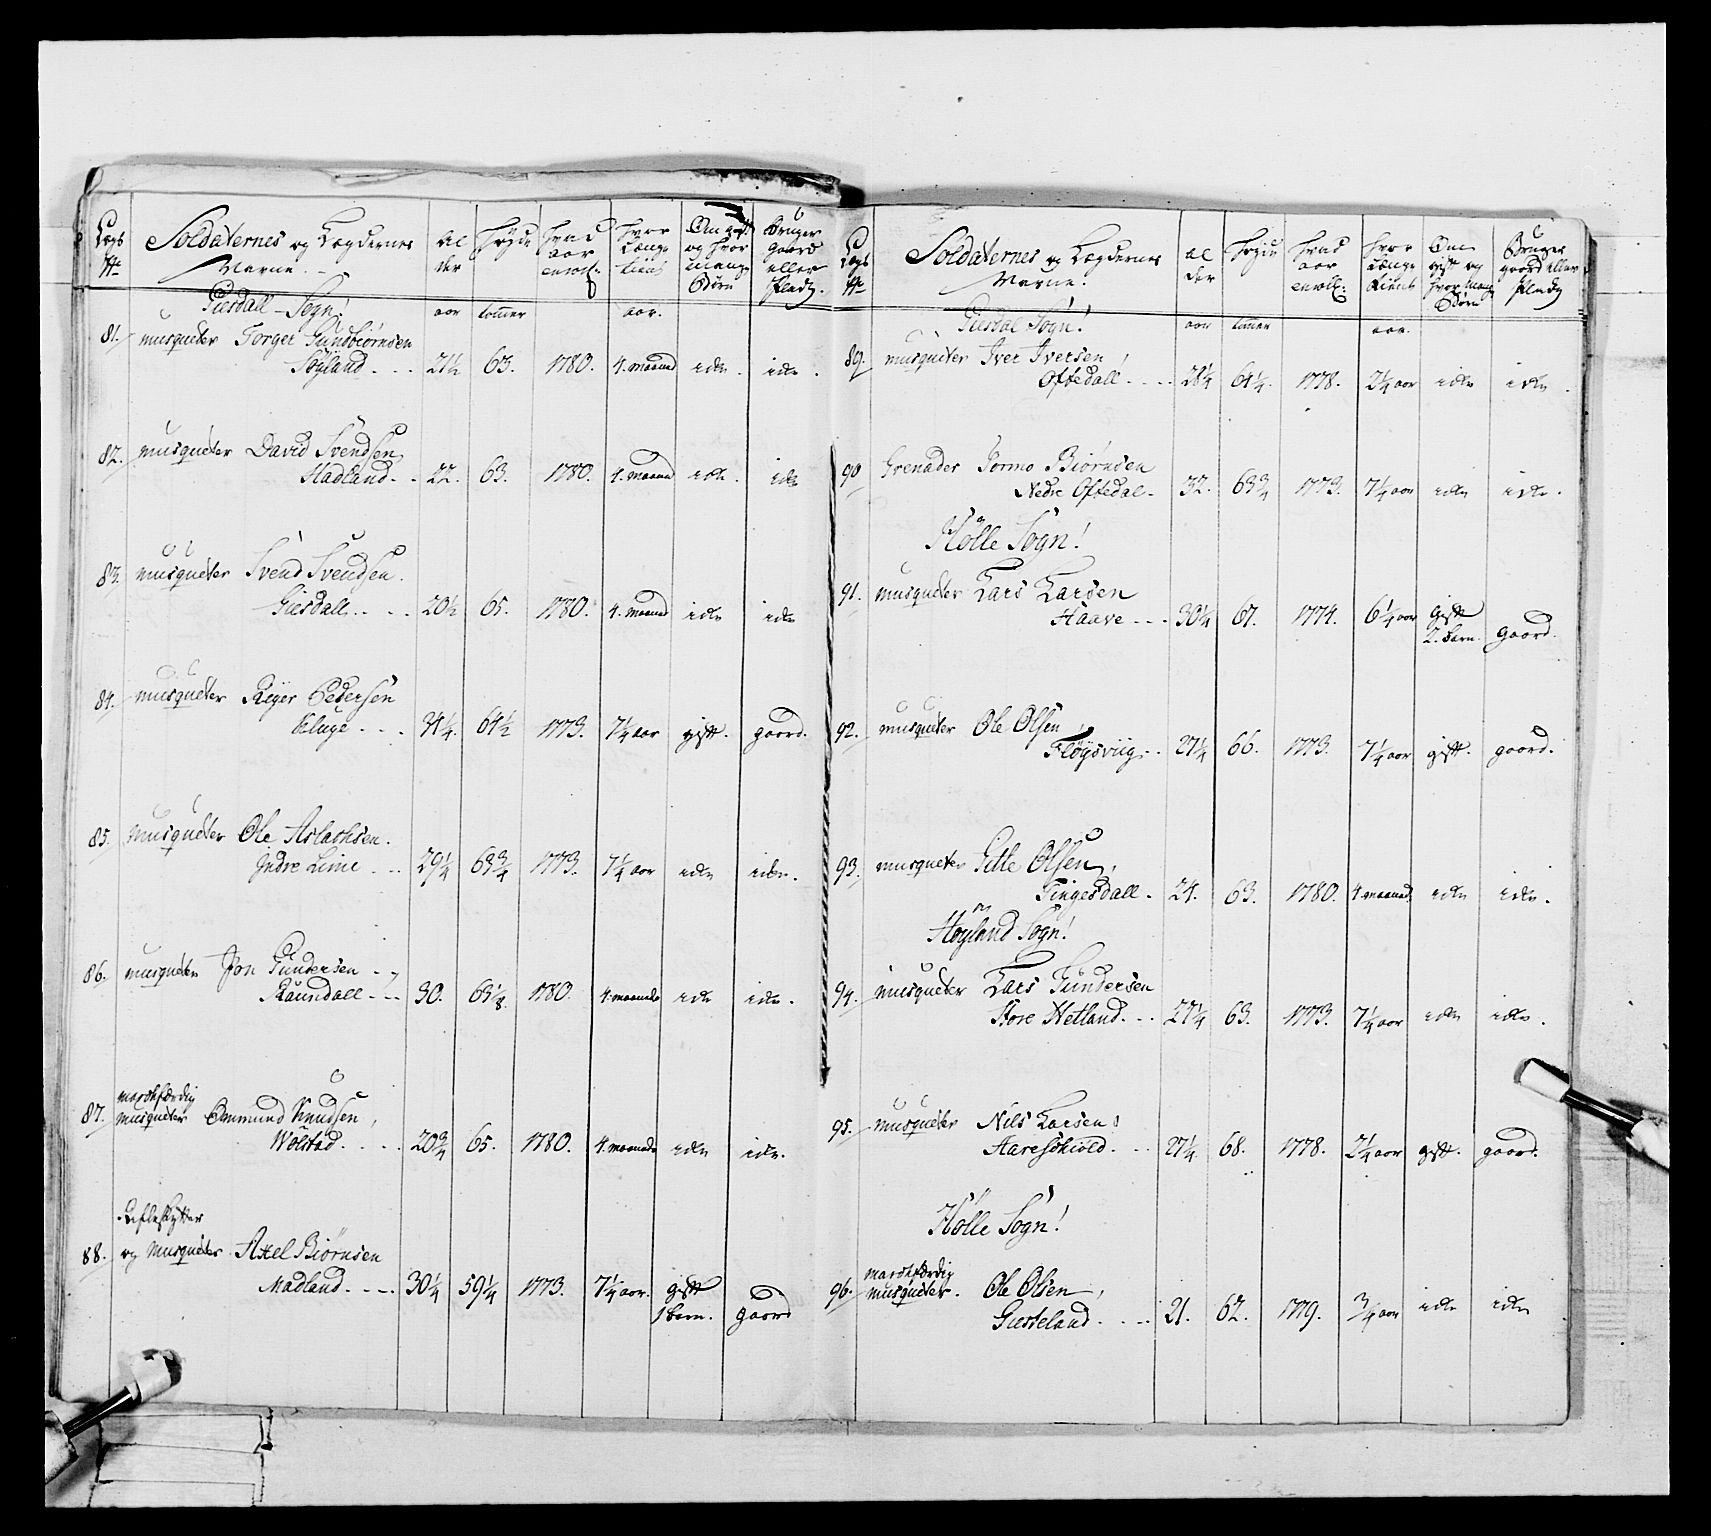 Lægs No
Soldaternes og Lægdernes Navne.
Al der
Høyde
hvad aar enroll:
hvor Længe tient
Om gift og hvor mange Børn
Bruger gaard eller Pladz.
Giesdall Sogn!
aar tomer aar.
81. musqueter Torger Gundbiørnsen
Søyland . . . 21½ 63. 1780. 4. maaned icke. icke.
82. musqueter David Svendsen
Madland. . 22. 63. 1780. 4. maaned icke. icke
83. musqueter Svend Svendsen.
Giesdall. . . 20½ 65. 1780. 4. maaned icke icke
84. musqueter Reyer Pedersen
Kluge . . . 34¼. 64½ 1773. 7¼ aar gift. gaard.
85. musqueter Ole Aslachsen.
Indre Lime . . . 29¼ 63¾ 1773. 7¼ aar icke icke.
86. musqueter Jon Gundersen - -
Raundall - - 30. 63⅛. 1780. 4. maaneds icke icke.
87. marchfærdig
musqueter Ommund Knudsen,
Wølstad. . . . 20¾ 65. 1780. 4. maaneds icke icke.
Refleskytter
88. og Musqueter Axel Biørnsen
Madland - - - . 30¼ 59¼ 1773. 7¼ aar. gift
1 barn. gaard
Lægs No
Soldaternes og Lægdernes Navne.
al der
høyde
hvad aar enroll:
hvor Længe tient
Om gift og hvor mange Børn
Bruger gaord eller Pladz
Giesdal Sogn!
aar tomer aar.
89. musqueter Iver Iversen,
Oftedall . . . . 28¼ 64¼. 1778. 2¼ aar icke icke.
90 Grenader Tormo Biørnsen
Nedre Oftedal. 32. 63¾ 1773. 7¼ aar icke icke.
Hølle Sogn!
91. musqueter Lars Larsen
Haave - - . 30¼ 67. 1774. 6¼ aar gift
2. barn. gaard.
92. musqueter Ole Olsen
Fløysviig. . 27¼ 66. 1773. 7¼ aar gift. gaard.
93. musqueter Gitle Olsen,
Tingesdall . 24. 63. 1780. 4. maaned. icke icke.
Høyland Sogn!
94. musqueter Lars Gundersen
Store Hetland. . . 27¼ 63. 1773. 7¼ aar icke icke.
95. musqueter Nils Larsen
Aareschiold. . . 27¼ 68. 1778. 2¼ aar gift. gaard.
Hølle Sogn!
96. marchfærdig
musqueter. Ole Olsen,
Giesteland. . . . 21. 62. 1779. ¾ aar icke icke